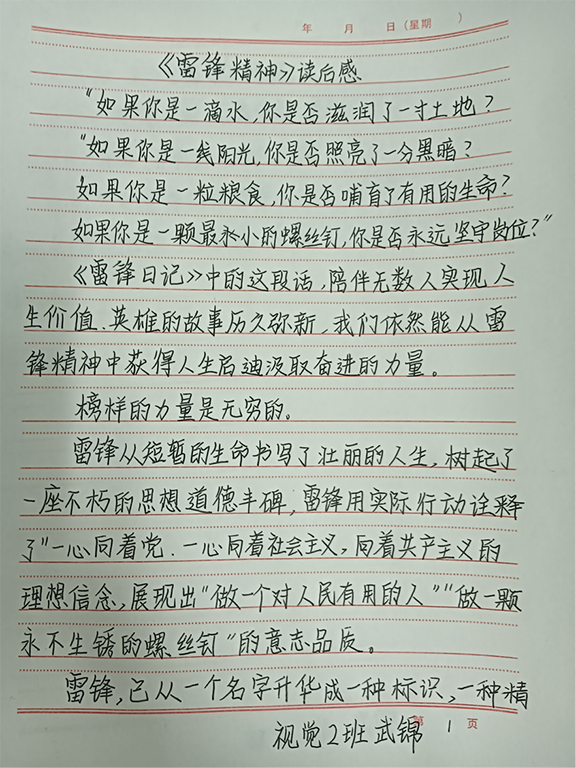 年 月 日（星期 ）
《雷锋精神》读后感
"如果你是一滴水,你是否滋润了一寸土地?
"如果你是一线阳光,你是否照亮了一分黑暗?
如果你是一粒粮食,你是否哺育了有用的生命?
如果你是一颗最小的螺丝钉,你是否永远坚守岗位?"
《雷锋日记》中的这段话,陪伴无数人实现人
生价值.英雄的故事历久弥新,我们依然能从雷
锋精神中获得人生启迪汲取奋进的力量。
榜样的力量是无穷的。
雷锋从短暂的生命书写了壮丽的人生,树起了
一座不朽的思想道德丰碑,雷锋用实际行动诠释
了"一心向着党.一心向着社会主义,向着共产主义的
理想信念,展现出"做一个对人民有用的人""做一颗
永不生锈的螺丝钉"的意志品质。
雷锋,已从一个名字升华成一种标识,一种精
第 1 页
视觉2班武锦